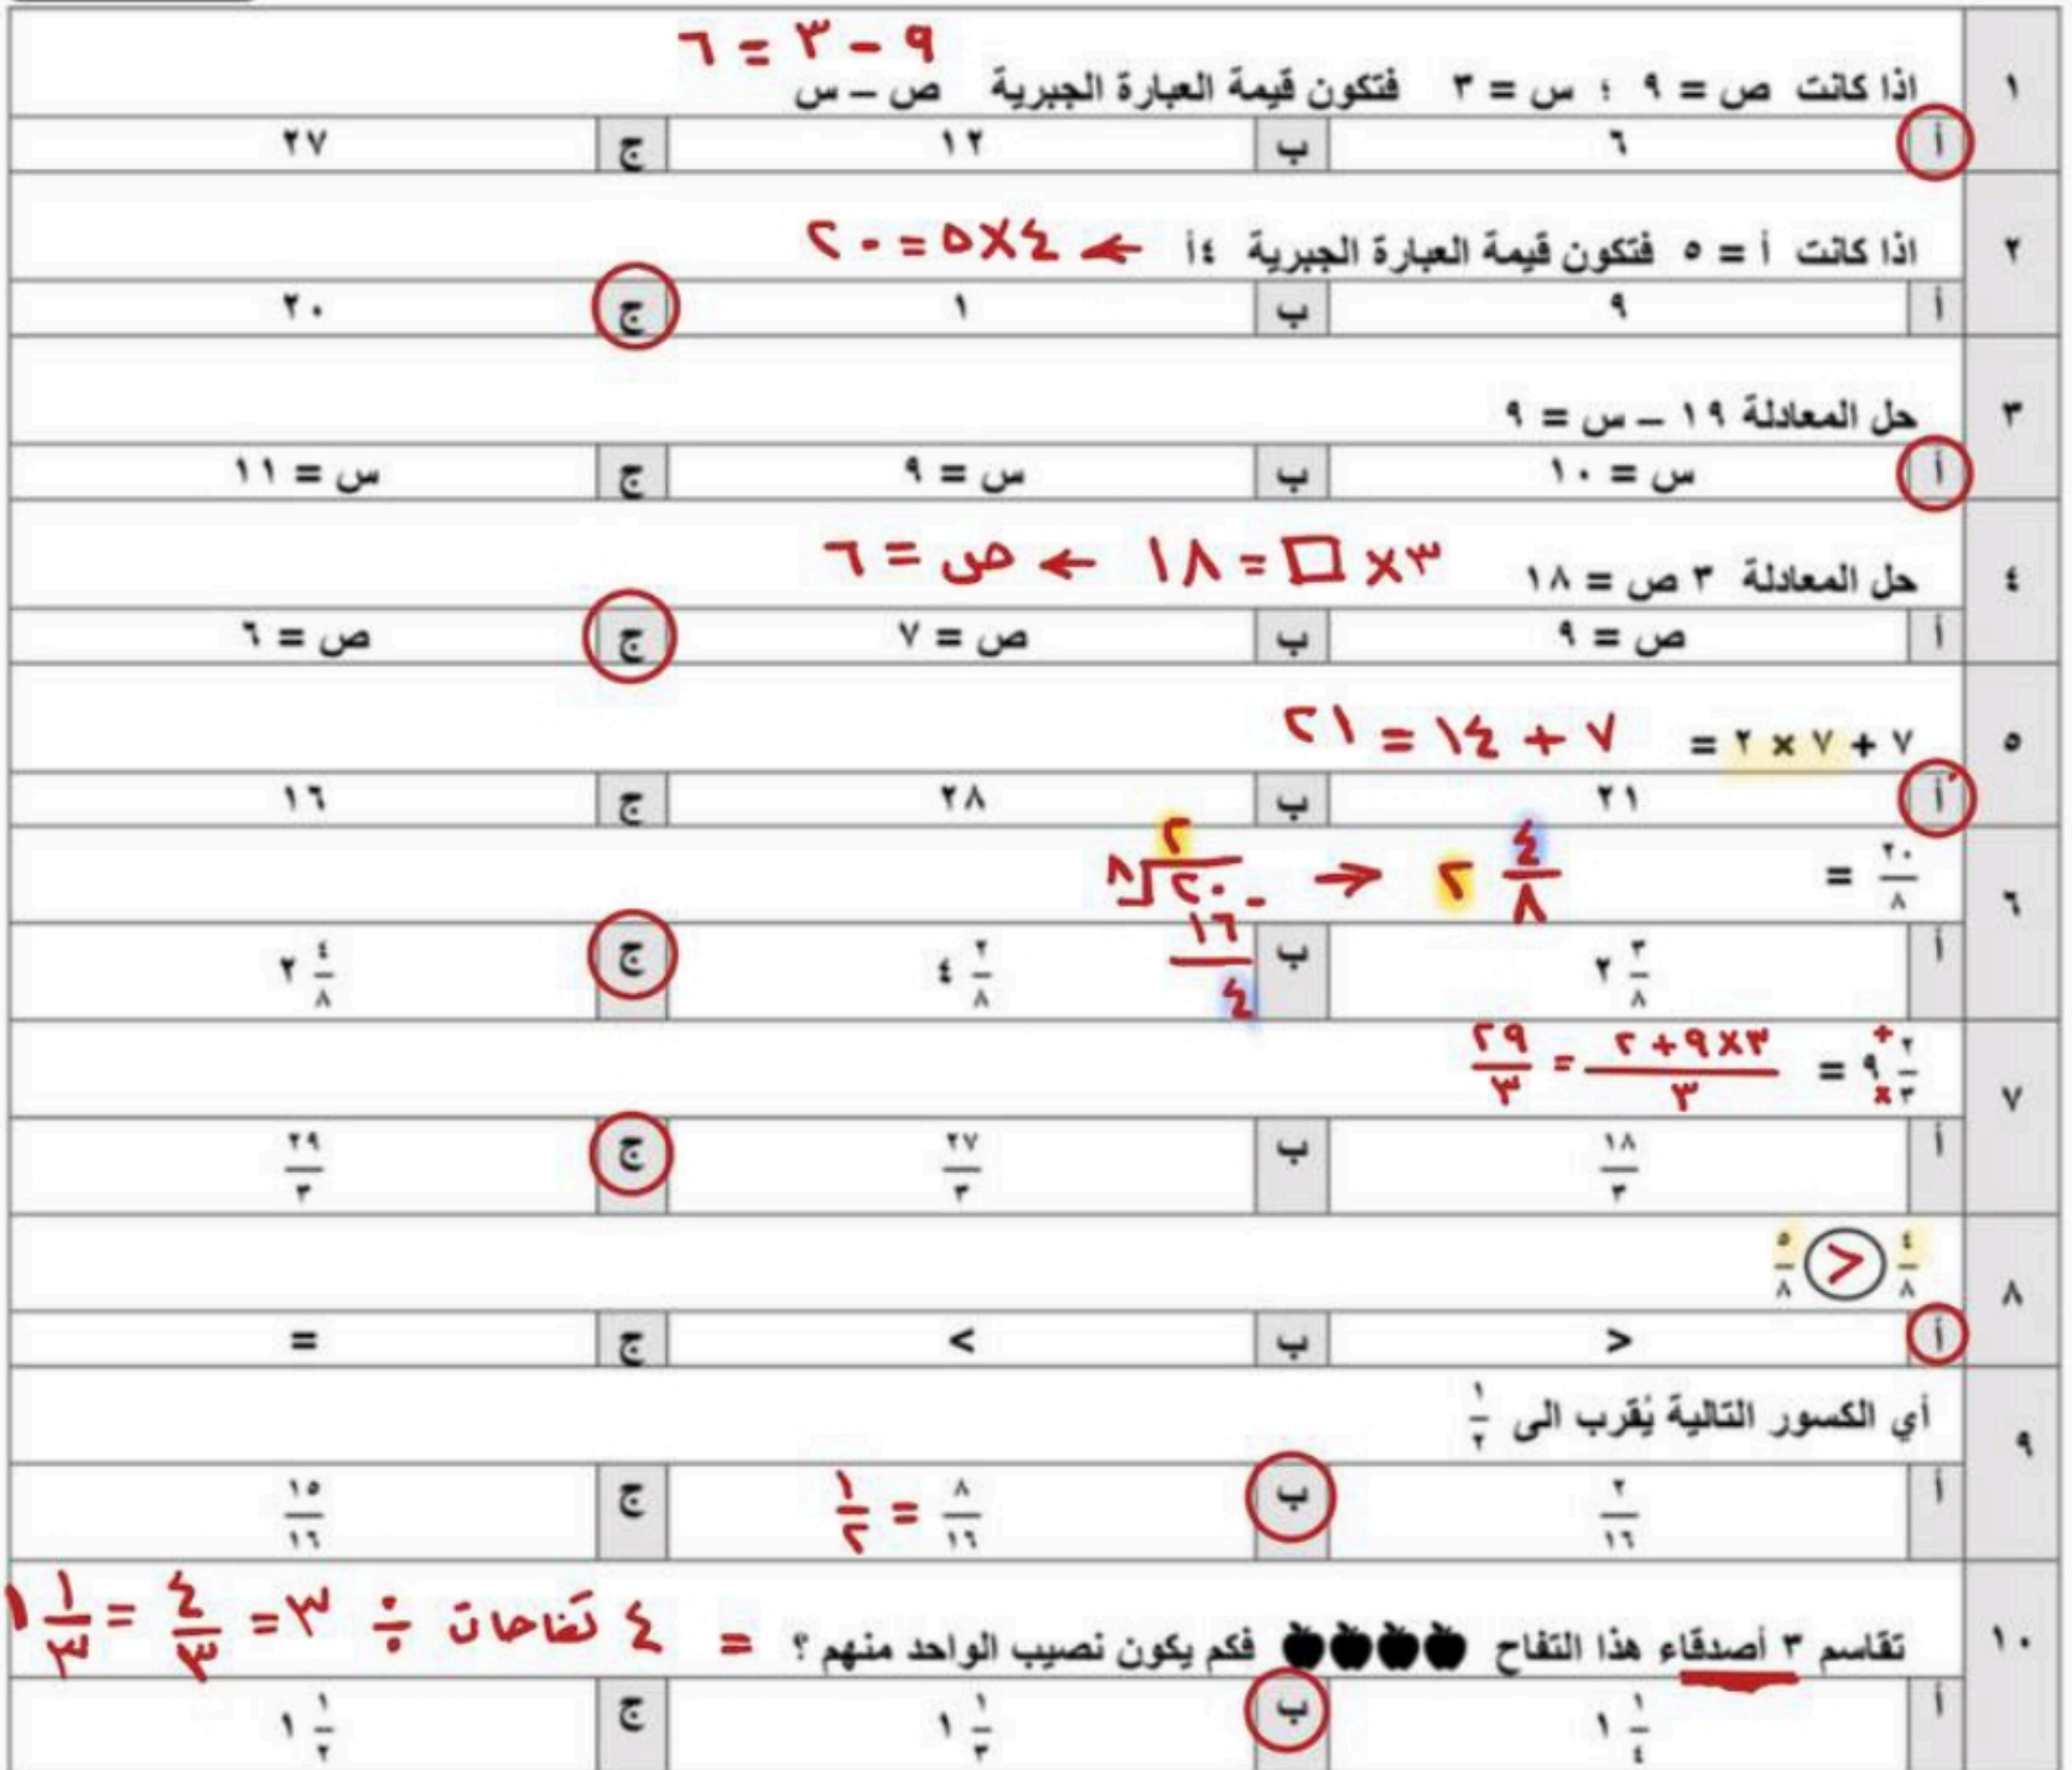 ٩ - ٣ = ٦
١ اذا كانت ص = ٩ ؛ س = ٣ فتكون قيمة العبارة الجبرية ص – س
أ ٦ ب ١٢ ج ٢٧
٢ اذا كانت أ = ٥ فتكون قيمة العبارة الجبرية ٤أ ← ٤×٥=٢٠
أ ٩ ب ١ ج ٢٠
٣ حل المعادلة ١٩ – س = ٩
أ س = ١٠ ب س = ٩ ج س = ١١
٤ حل المعادلة ٣ ص = ١٨ ٣×□=١٨ ← ص = ٦
أ ص = ٩ ب ص = ٧ ج ص = ٦
٥ ٧ + ٧ × ٢ = ٧ + ١٤ = ٢١
أ ٢١ ب ٢٨ ج ١٦
٦ ٢٠/٨ = ٢ ٤/٨ → ٢
٨ ٢٠ -
١٦
٤
أ ٢ ٣/٨ ب ٤ ٢/٨ ج ٢ ٤/٨
٧ ٩ ٢/٣ + × = ٣×٩+٢/٣ = ٢٩/٣
أ ١٨/٣ ب ٢٧/٣ ج ٢٩/٣
٨ ٤/٨ > ٥/٨
أ > ب < ج =
٩ أي الكسور التالية يُقرب الى ١/٢
أ ٢/١٦ ب ٨/١٦ = ١/٢ ج ١٥/١٦
١٠ تقاسم ٣ أصدقاء هذا التفاح فكم يكون نصيب الواحد منهم ؟ = ٤ تفاحات ÷ ٣ = ٤/٣ = ١ ١/٣
أ ١ ١/٤ ب ١ ١/٣ ج ١ ١/٢